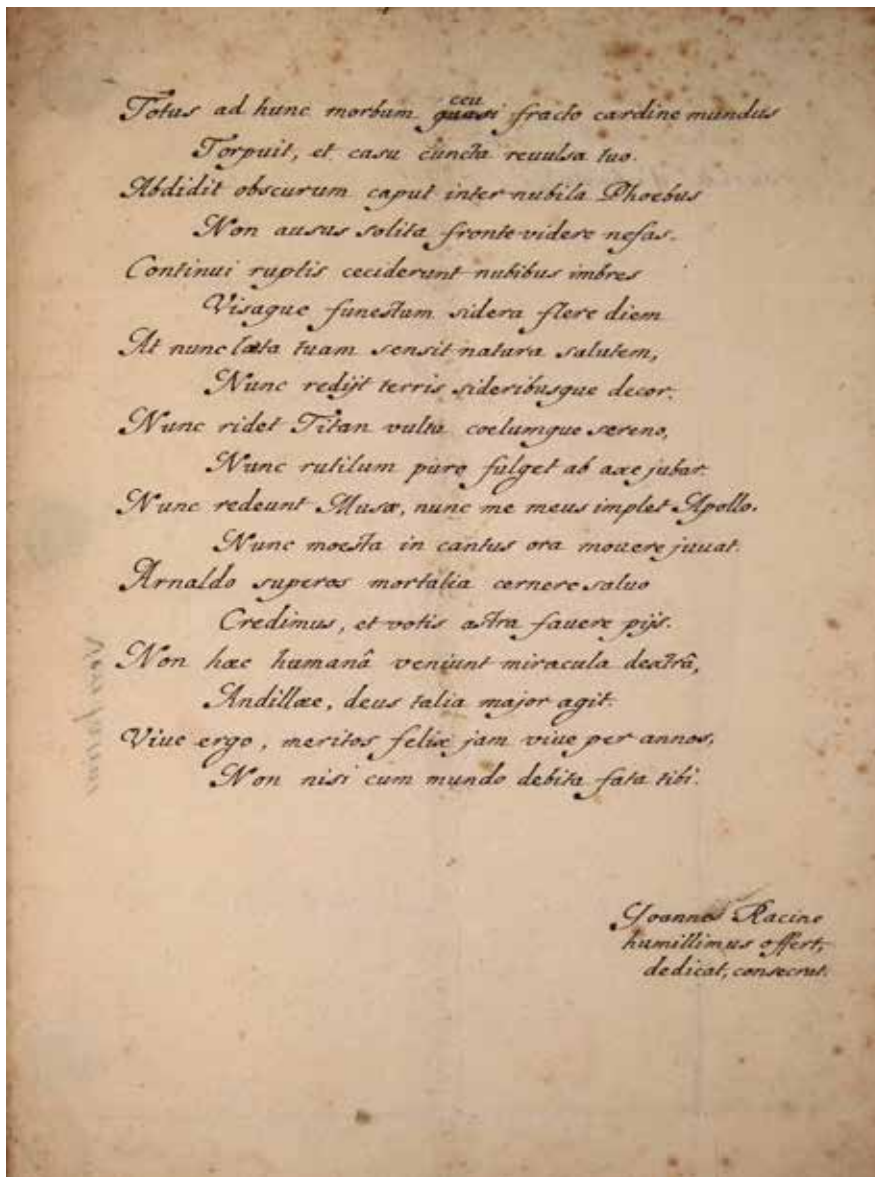 Totus ad hunc morbum quasi ceu fracto cardine mundus
Torpuit, et casu cuncta reuulsa tuo.
Abdidit obscurum caput inter nubila Phoebus
Non ausus solita fronte videre nefas.
Continui ruptis ceciderunt nubibus imbres
Visaque funestum sidera flere diem
At nunc læta tuam sensit natura salutem,
Nunc redijt terris sideribusque decor.
Nunc ridet Titan vultu coelumque sereno,
Nunc rutilum puro fulget ab axe jubar.
Nunc redeunt Musæ, nunc me meus implet Apollo.
Nunc moesta in cantus ora mouere juuat.
Arnaldo superos mortalia cernere saluo
Credimus, et votis astra fauere pijs.
Non hæc humanâ veniunt miracula dextrâ,
Andillæe, deus talia major agit.
Viue ergo, meritos felix jam viue per annos,
Non nisi cum mundo debita fata tibi.
Joannes Racine
humillimus offert,
dedicat, consecrat.